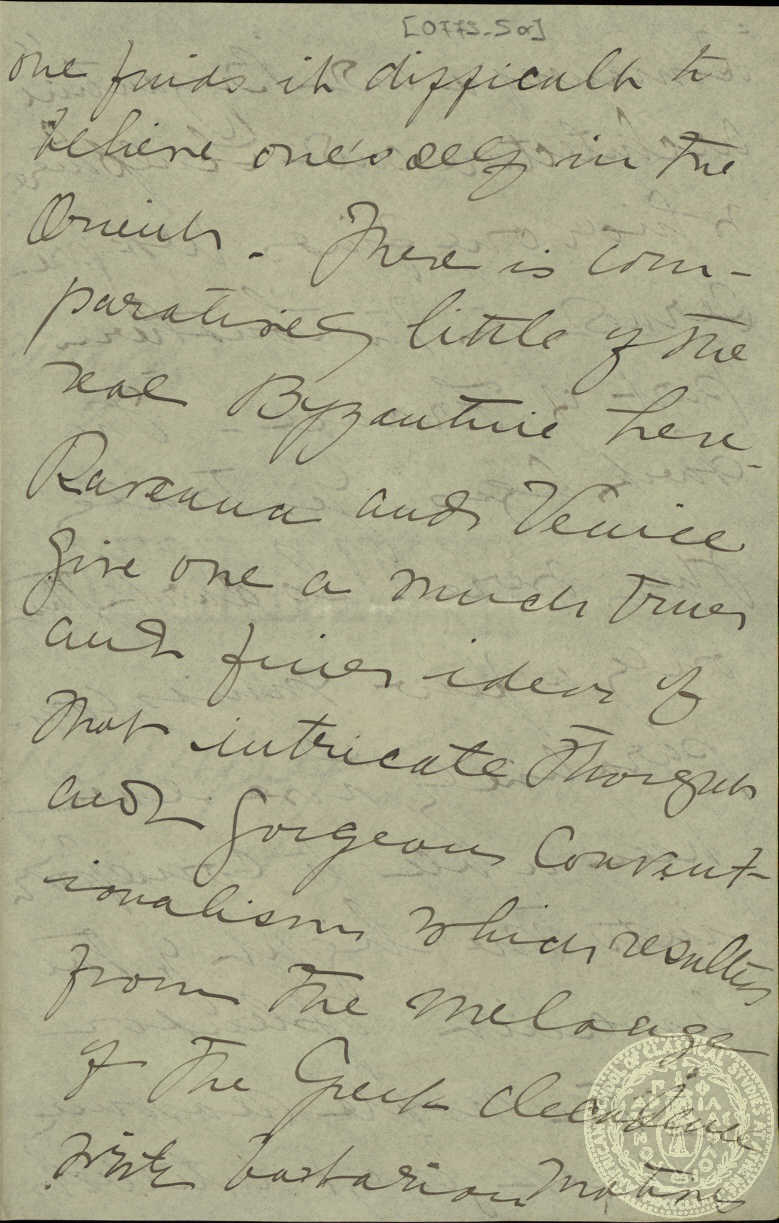 [0773-5α]
one finds it difficult to
believe one's self in the
Orient. There is com-
paratively little of the
real Byzantine here.
Ravenna and Venice
give one a much truer
and finer idea of
that intricate thought
and gorgeous convent-
ionalism which resulted
from the melange
of the Greek decadence
with barbarian motives
SCHOOL OF CLASSICAL STUDIES AT